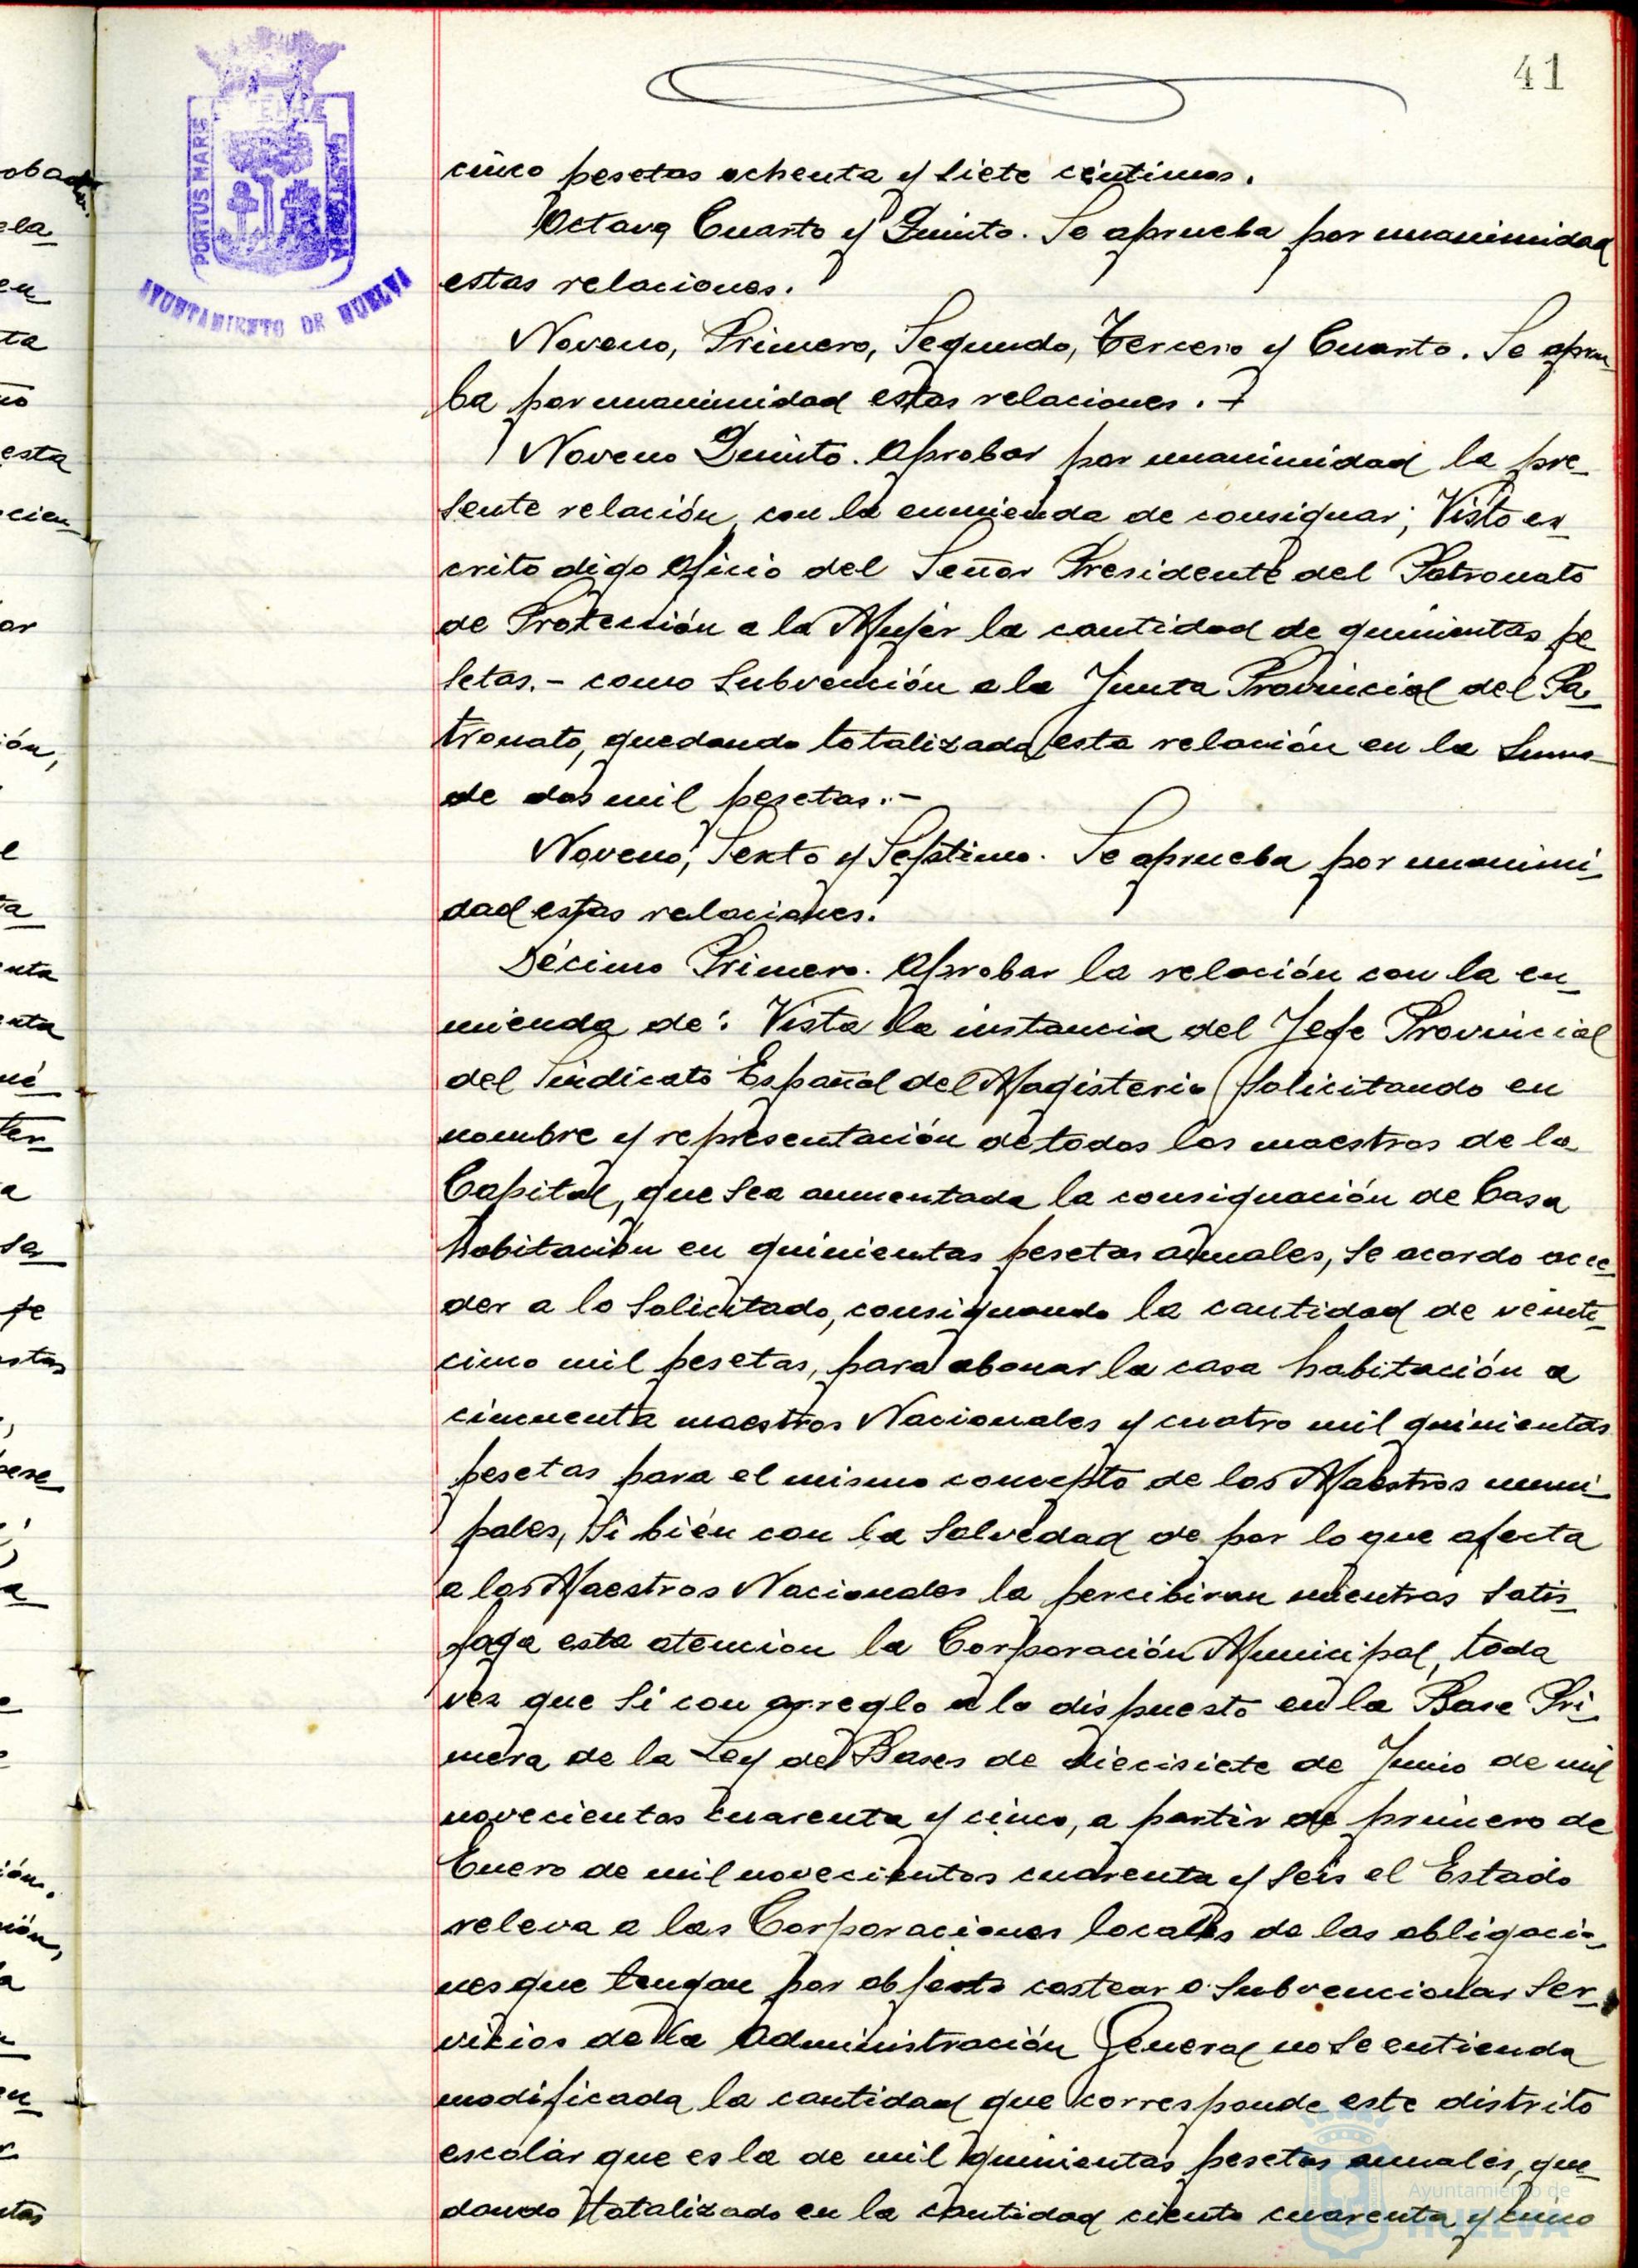 41
PORTUS MARIS
ET TERRAE
CUSTODIA
AYUNTAMIENTO DE HUELVA
cinco pesetas ochenta y siete céntimos.
Octavo Cuarto y Quinto. Se aprueba por unanimidad
estas relaciones.
Noveno, Primero, Segundo, Tercero y Cuarto. Se aprue
ba por unanimidad estas relaciones. -
Noveno Quinto. Aprobar por unanimidad la pre-
sente relación, con la enmienda de consignar; Visto es-
crito digo oficio del Señor Presidente del Patronato
de Protección a la Mujer la cantidad de quinientas pe
setas.- como subvención a la Junta Provincial del Pa-
tronato, quedando totalizada esta relación en la suma
de dos mil pesetas.-
Noveno, Sexto y Séptimo. Se aprueba por unanimi-
dad estas relaciones.
Décimo Primero. Aprobar la relación con la en-
mienda de: Vista la instancia del Jefe Provincial
del Sindicato Español del Magisterio solicitando en
nombre y representación de todos los maestros de la
Capital, que sea aumentada la consignación de Casa
habitación en quinientas pesetas anuales, se acordo acce-
der a lo solicitado, consignando la cantidad de veinti-
cinco mil pesetas, para abonar la casa habitación a
cincuenta maestros Nacionales y cuatro mil quinientas
pesetas para el mismo concepto de los Maestros muni-
pales, si bién con la salvedad de por lo que afecta
a los Maestros Nacionales la percibiran mientras satis-
faga esta atencion la Corporación Municipal, toda
vez que si con arreglo a lo dispuesto en la Base Pri-
mera de la Ley de Bases de diecisiete de Junio de mil
novecientos cuarenta y cinco, a partir de primero de
Enero de mil novecientos cuarenta y seis el Estado
releva a las Corporaciones locales de las obligacio-
nes que tengan por objeto costear o subvencionar Ser-
vicios de la Administración General no se entienda
modificada la cantidad que corresponde este distrito
escolar que es la de mil quinientas pesetas anuales, que-
dando totalizado en la cantidad ciento cuarenta y cinco
Ayuntamiento de
HUELVA